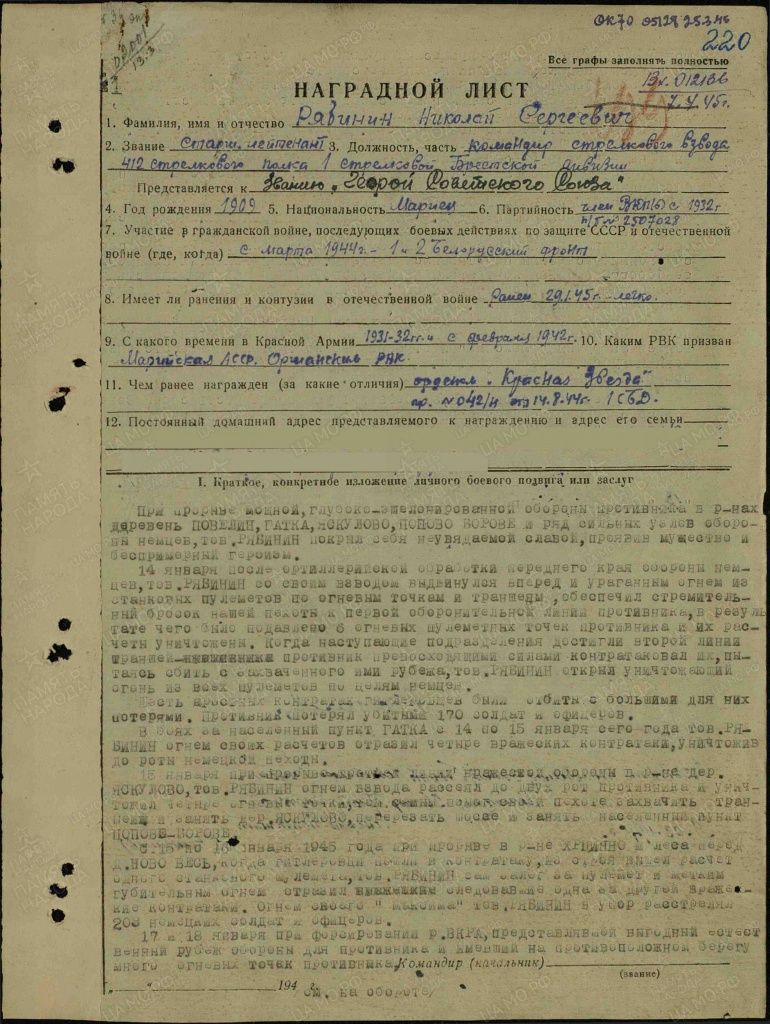 ОК70 05128 25.3.46
220
Все графы заполнять полностью
НАГРАДНОЙ ЛИСТ
Вх. 012136
7.4.45г.
1. Фамилия, имя и отчество Рябинин Николай Сергеевич
2. Звание Старш. лейтенант 3. Должность, часть командир стрелкового взвода
412 стрелкового полка 1 стрелковой Брестской дивизии
Представляется к званию „Герой Советского Союза"
4. Год рождения 1909 5. Национальность Мариец 6. Партийность член ВКП(б) с 1932г
п/б № 2507028
7. Участие в гражданской войне, последующих боевых действиях по защите СССР и отечественной
войне (где, когда) с марта 1944г - 1 и 2 Белорусский фронт
8. Имеет ли ранения и контузии в отечественной войне Ранен 29.1.45г. легко.
9. С какого времени в Красной Армии 1931-32гг. и с февраля 1942г. 10. Каким РВК призван
Марийская АССР. Оршанским РВК
11. Чем ранее награжден (за какие отличия) орденом „Красная Звезда"
пр. № 042/н от 14.8.44г. 1 СБД.
12. Постоянный домашний адрес представляемого к награждению и адрес его семьи
I. Краткое, конкретное изложение личного боевого подвига или заслуг
При прорыве мощной, глубоко-эшелонированной обороны противника в р-нах
деревень ПОВЕЛИН, ГАТКА, ЯСКУЛОВО, ПОПОВО БОРОВЕ и ряд сильных узлов оборо-
ны немцев, тов. РЯБИНИН покрыл себя неувядаемой славой, проявив мужество и
беспримерный героизм.
14 января после артиллерийской обработки переднего края обороны нем-
цев, тов. РЯБИНИН со своим взводом выдвинулся вперед и ураганным огнем из
станковых пулеметов по огневым точкам и траншеям, обеспечил стремитель-
ный бросок нашей пехоты к первой оборонительной линии противника, в резуль
тате чего было подавлено 6 огневых пулеметных точек противника и их рас-
четы уничтожены. Когда наступающие подразделения достигли второй линии
траншей противник превосходящими силами контратаковал их, пы-
таясь сбить с захваченного ими рубежа, тов. РЯБИНИН открыл уничтожающий
огонь из всех пулеметов по целям немцев.
Шесть яростных контратак гитлеровцев были отбиты с большими для них
потерями. Противник потерял убитыми 170 солдат и офицеров.
В боях за населенный пункт ГАТКА с 14 по 15 января сего года тов. РЯ-
БИНИН огнем своих расчетов отразил четыре вражеских контратаки, уничтожив
до роты немецкой пехоты.
15 января при прорыве линии вражеской обороны в р-не дер.
ЯСКУЛОВО, тов. РЯБИНИН огнем взвода рассеял до двух рот противника и унич-
тожил четыре огневые точки, тем самым помог своей пехоте захватить тран-
шеи и занять дер. ЯСКУЛОВО, перерезать шоссе и занять населенный пункт
ПОПОВО-БОРОВЕ.
С 15 по 16 января 1945 года при прорыве в р-не и леса перед
д. НОВО ВЕСЬ, когда гитлеровцы пошли в контратаку, из строя вышел расчет
одного станкового пулемета, тов. РЯБИНИН сам залег за пулемет и метким
губительным огнем отразил следовавшие одна за другой враже-
ские контратаки. Огнем своего "максима" тов. РЯБИНИН в упор расстрелял
200 немецких солдат и офицеров.
17 и 18 января при форсировании р. ВКРА, представлявшей выгодный естест
венный рубеж обороны для противника и имевший на противоположном берегу
много огневых точек противника. Командир (начальник)
(звание)
" " 194 г.
см. на обороте/